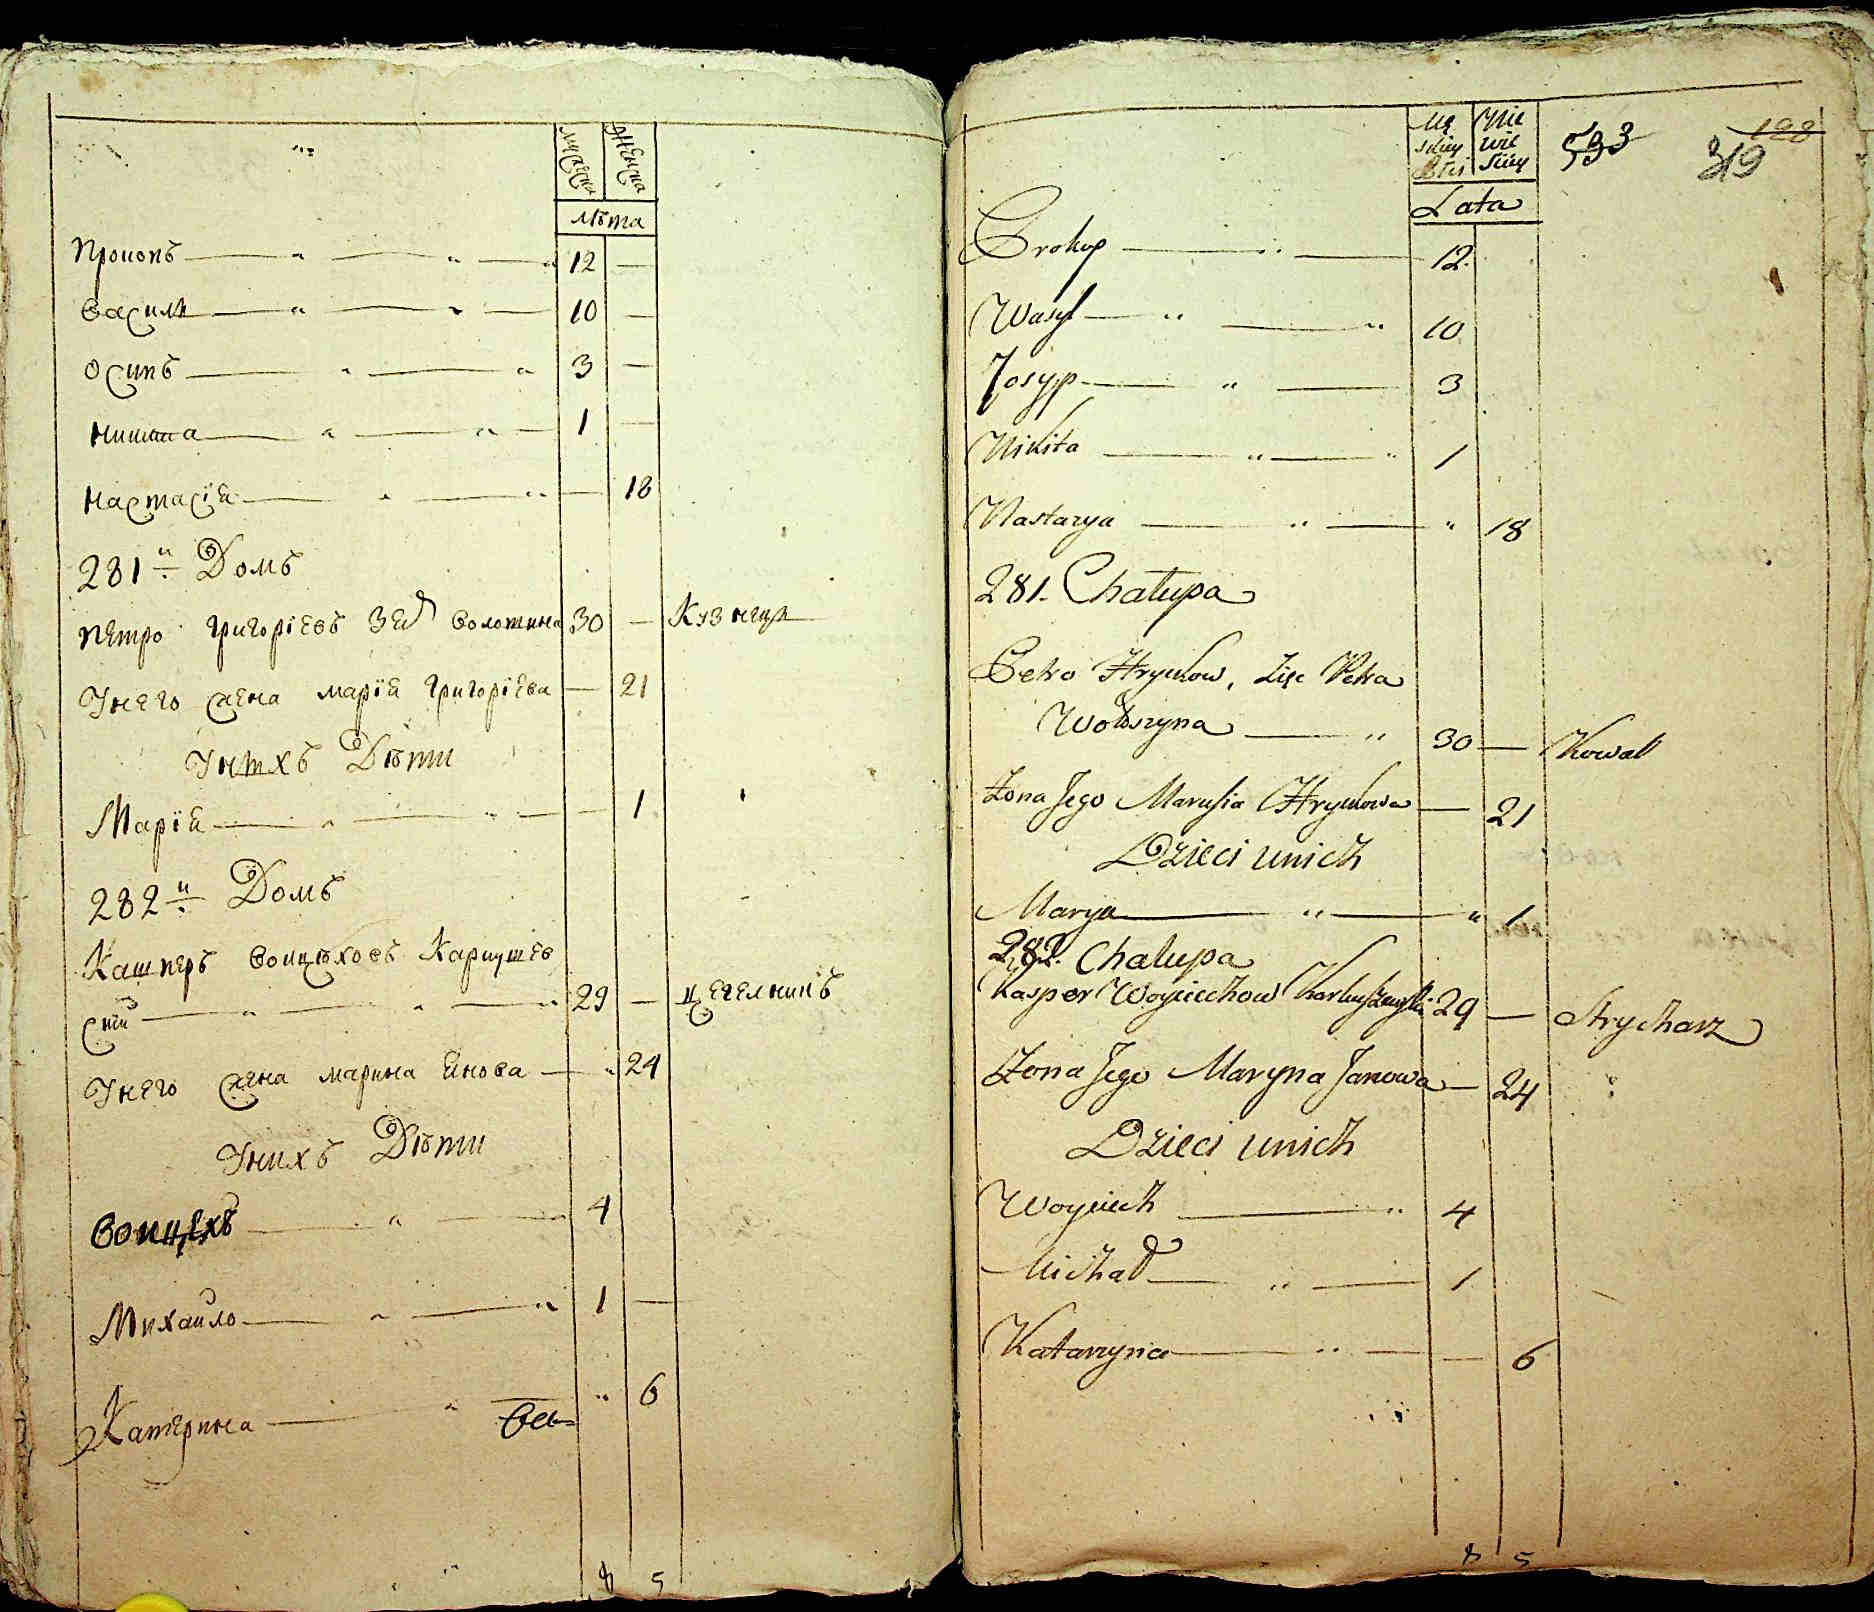 мужеска женска
лѣта
Прокопъ 12
Василь 10
Осипъ 3
Никита 1
Настасія 18
281й Домъ
Петро Григоріевъ Зят Волошина 30 Кузнецъ
Унего жена Марія Григоріева 21
Унихъ Дѣти
Марія 1
282й Домъ
Кашперъ Войцѣховъ Карпушев
ски 29 цегелникъ
Унего жена Марина Янова 24
Унихъ Дѣти
Войцехъ 4
Михайло 1
Катерина 6
8 5
533 319 198
Lata
Prokop 12
Wasyl 10
Josyp 3
Nikita 1
Nastazya 18
281. Chałupa
Petro Hryńkow, Zięc Petra
Wołoszyna 30 Kowal
Żona Jego Marusia Hryńkowa 21
Dzieci unich
Marya 1
282. Chałupa
Kasper Woyciechow 29 Strycharz
Żona Jego Maryna Janowa 24
Dzieci unich
Woyciech 4
Michał 1
Katarzyna 6
8 5